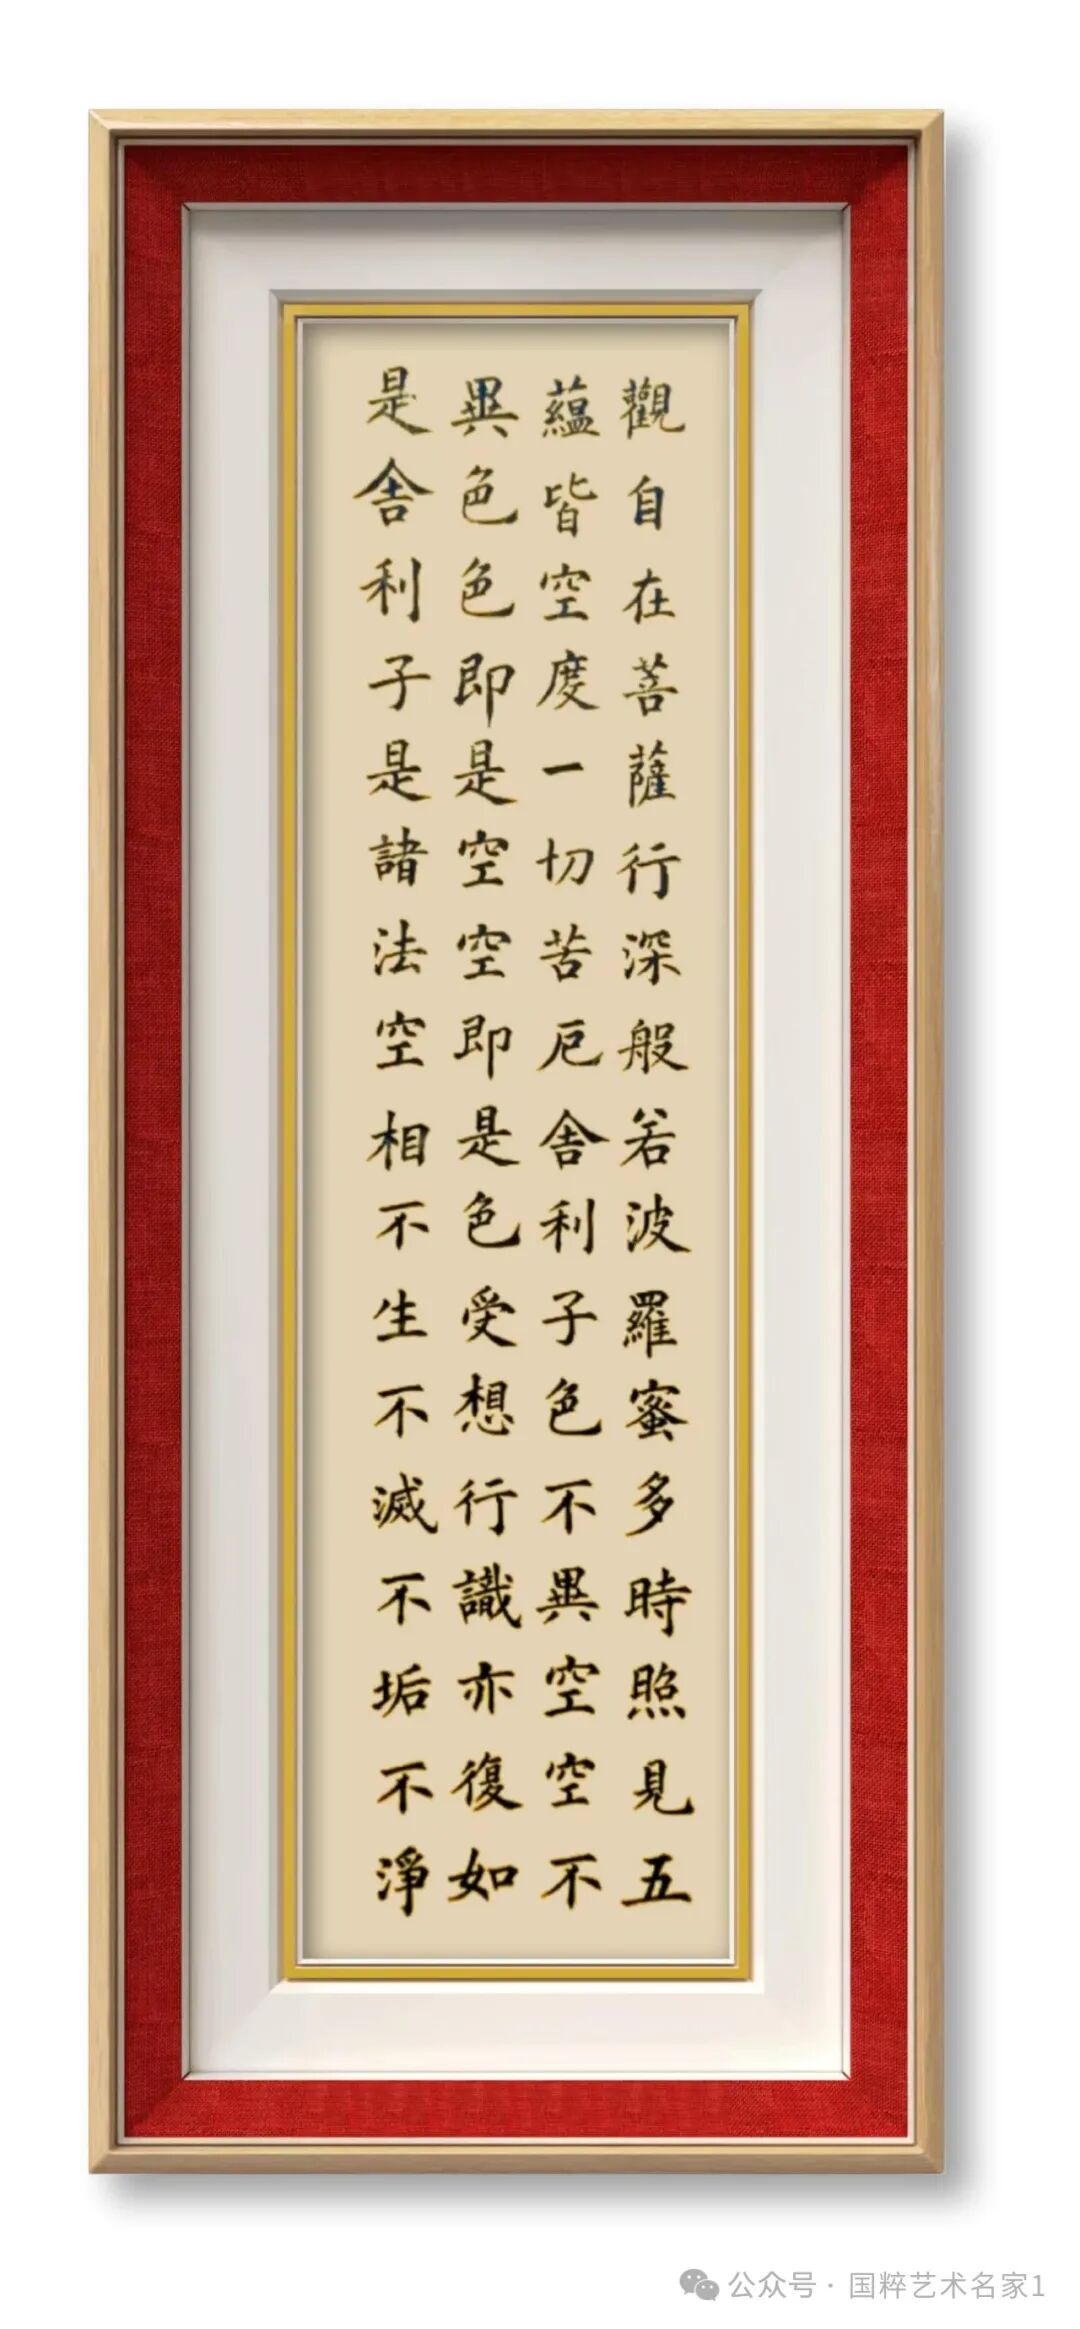 觀自在菩薩行深般若波羅蜜多時照見五
蘊皆空度一切苦厄舍利子色不異空空不
異色色即是空空即是色受想行識亦復如
是舍利子是諸法空相不生不滅不垢不淨
公众号 · 国粹艺术名家1